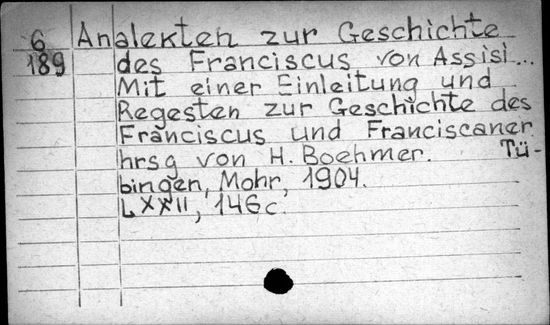 6 Analekten zur Geschichte
189 des Franciscus von Assisi...
Mit einer Einleitung und
Regesten zur Geschichte des
Franciscus und Franciscaner
hrsg von H. Boehmer. Tü-
bingen, Mohr, 1904.
LXXII, 146c.